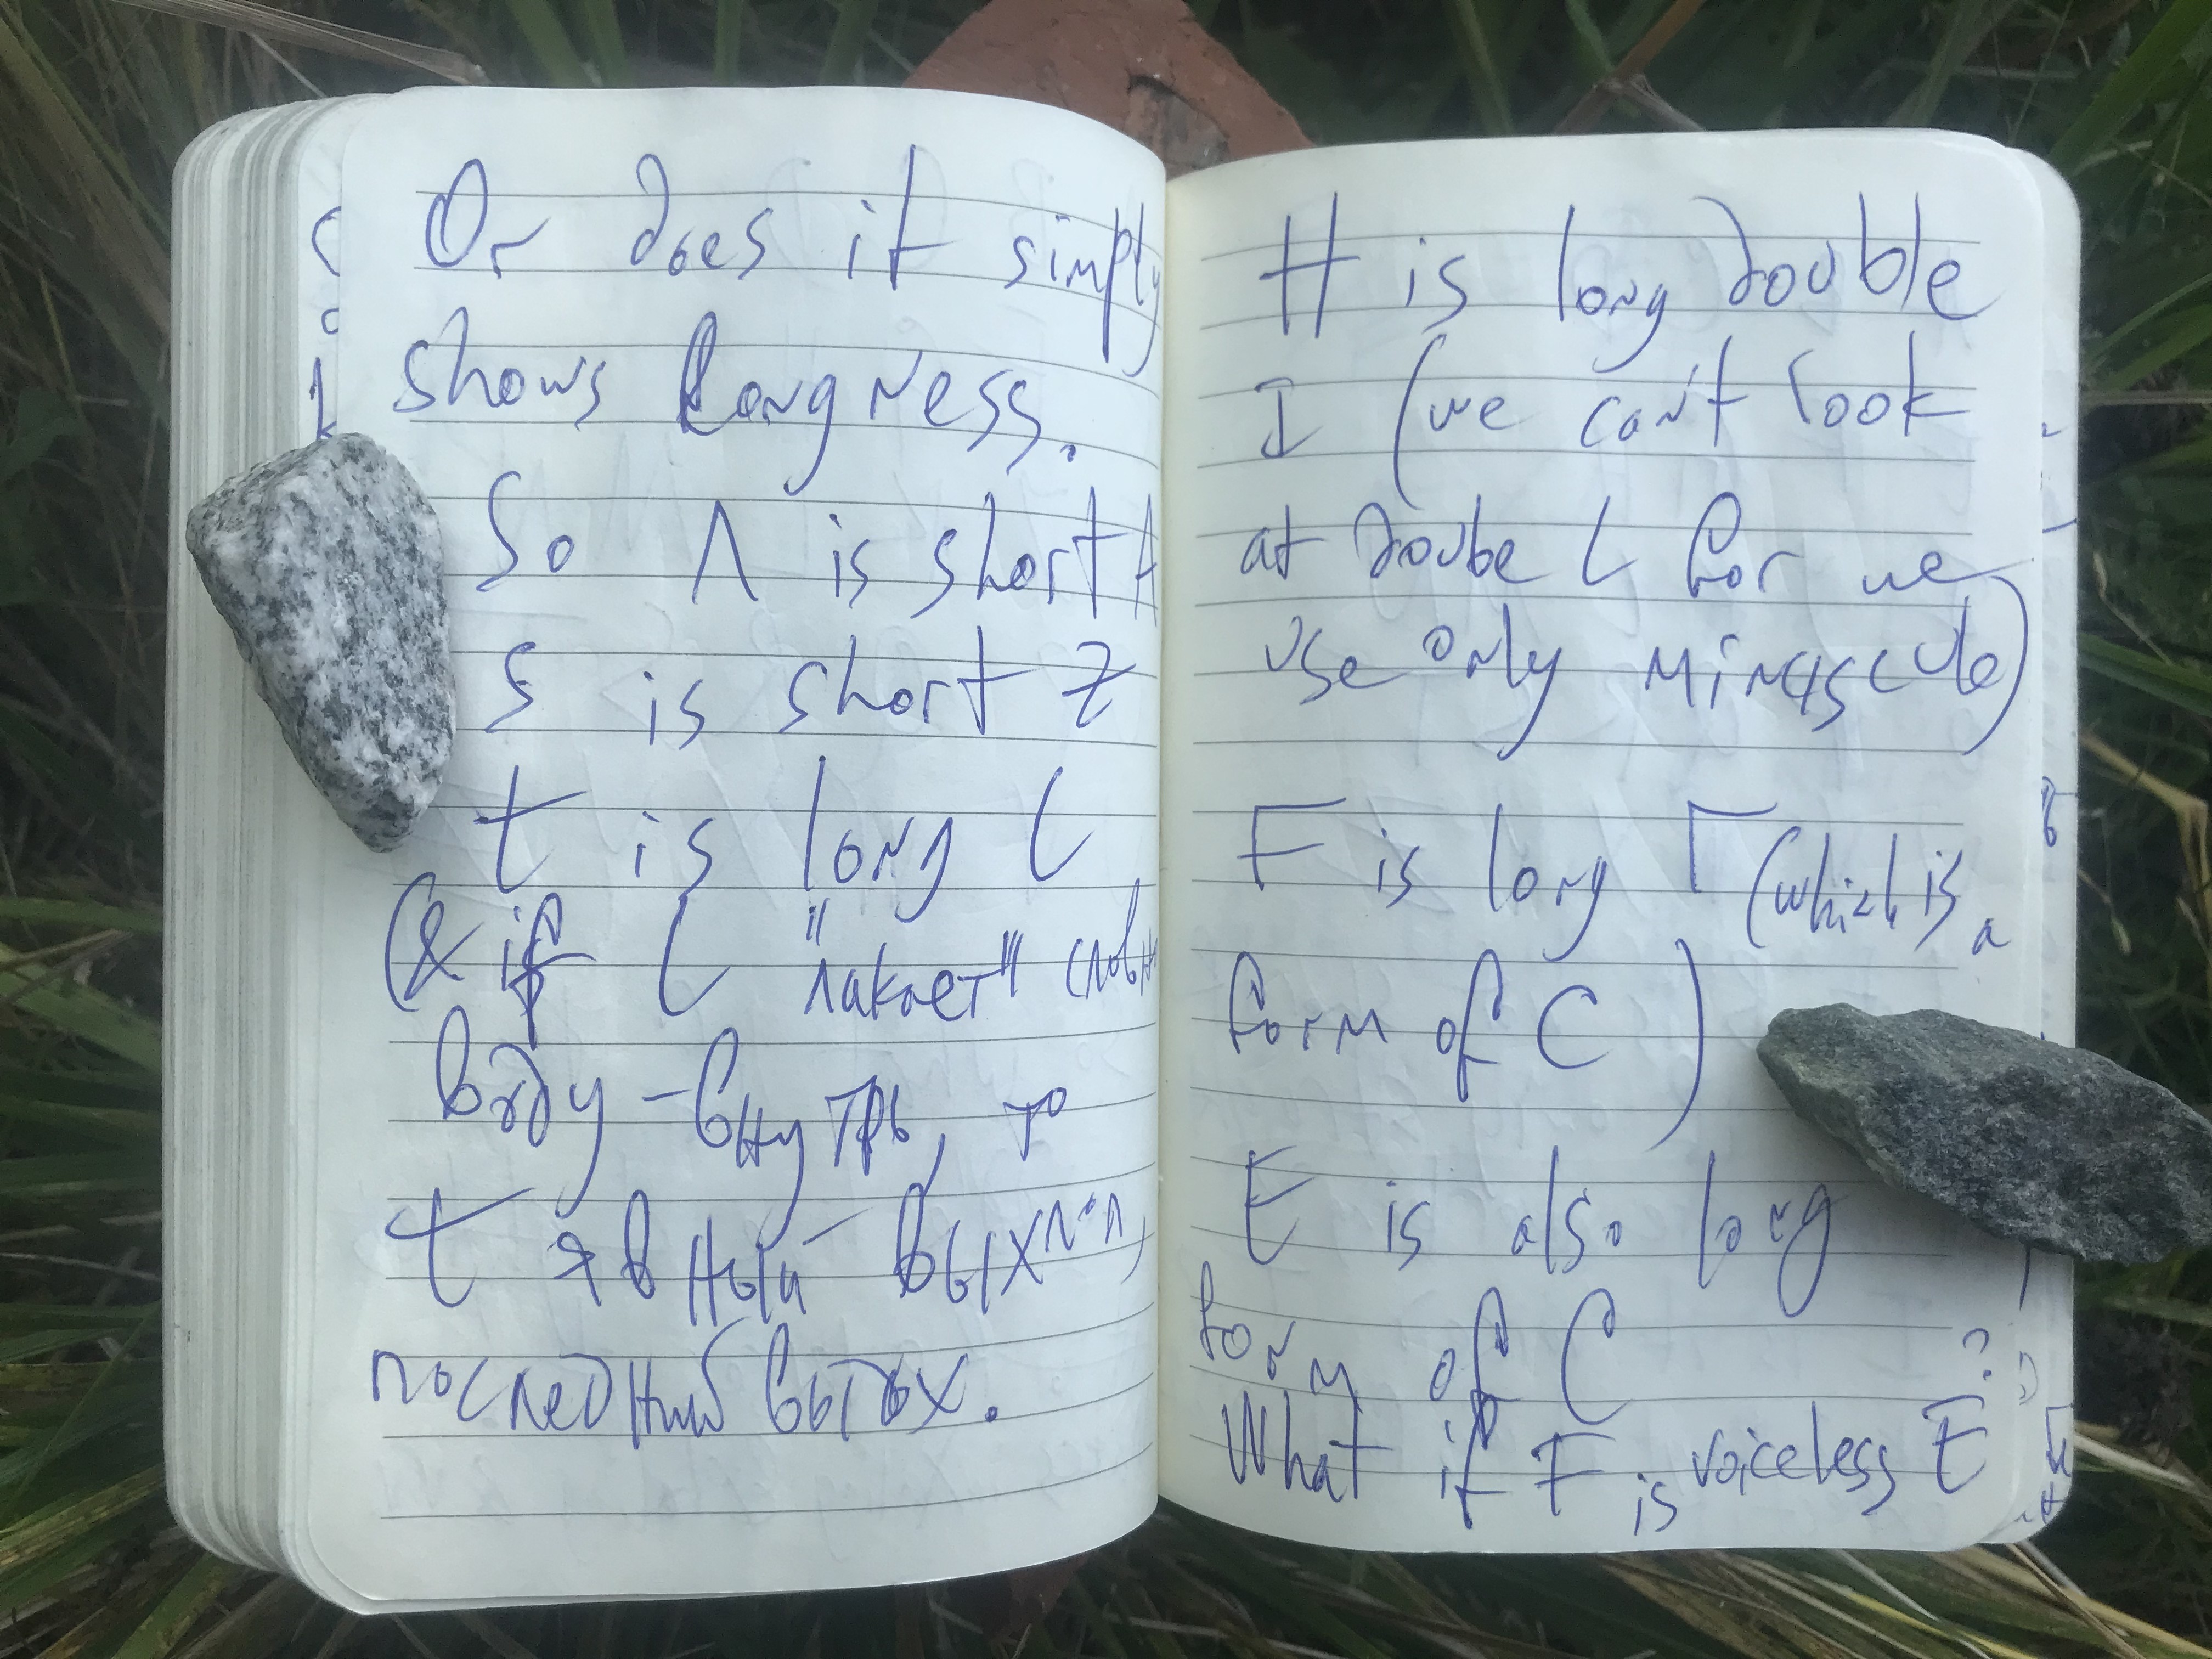 Or does it simply
shows longness.
So Λ is short A
s is short z
t is long (
(& if ( "лакает"
воду - внутрь то
t &
последний
H is long double
I (we can't look
at double L for we
use only minuscule)
F is long Γ (which is a
form of C)
E is also long
form of C
What if F is voiceless E?